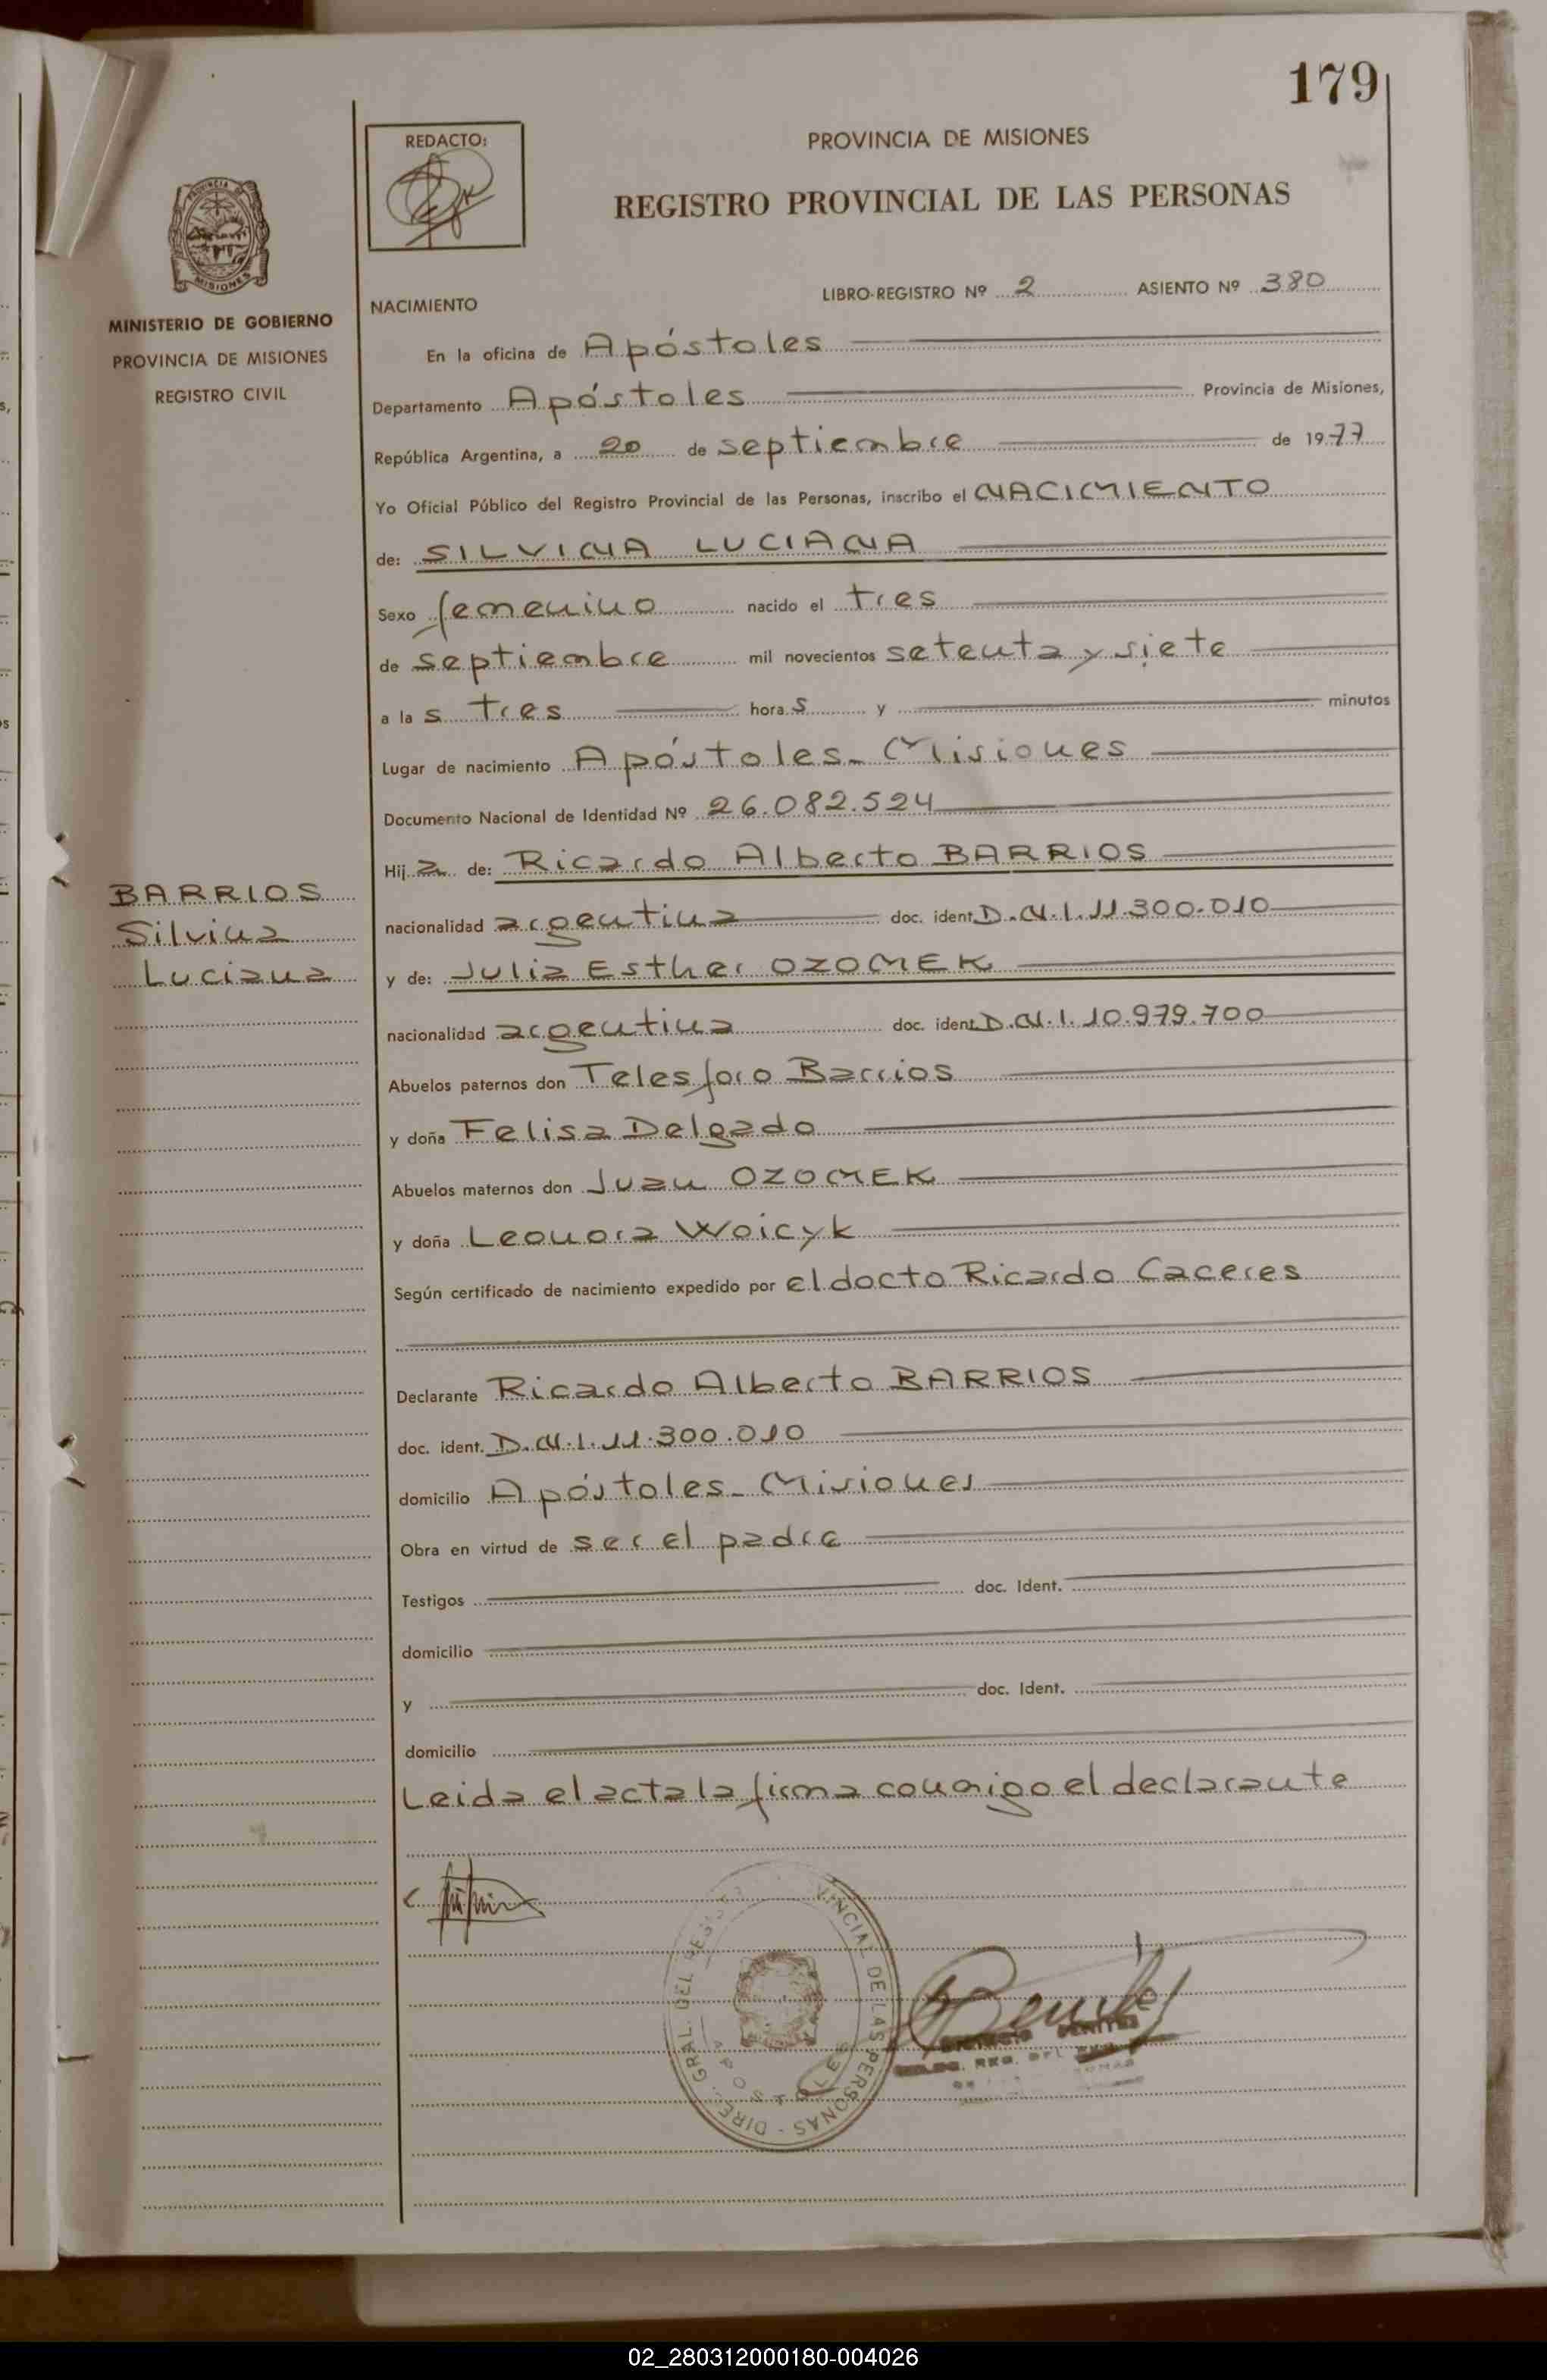 179
REDACTO:
PROVINCIA DE MISIONES
REGISTRO PROVINCIAL DE LAS PERSONAS
MISIONES
MINISTERIO DE GOBIERNO
PROVINCIA DE MISIONES
REGISTRO CIVIL
NACIMIENTO
LIBRO-REGISTRO Nº 2 ASIENTO Nº 380
En la oficina de Apóstoles
Departamento Apóstoles Provincia de Misiones,
República Argentina, a 20 de septiembre de 1977
Yo Oficial Público del Registro Provincial de las Personas, inscribo el NACIMIENTO
de: SILVINA LUCIANA
Sexo femenino nacido el tres
de septiembre mil novecientos setenta y siete
a las tres horas y minutos
Lugar de nacimiento Apóstoles - Misiones
Documento Nacional de Identidad Nº 26.082.524
Hija de: Ricardo Alberto BARRIOS
BARRIOS
Silvina
Luciana
nacionalidad argentina doc. ident. D.N.I. 11.300.010
y de: Julia Esther OZOMEK
nacionalidad argentina doc. ident. D.N.I. 10.979.700
Abuelos paternos don Telesforo Barrios
y doña Felisa Delgado
Abuelos maternos don Juan OZOMEK
y doña Leonora Woicyk
Según certificado de nacimiento expedido por el docto Ricardo Caceres
Declarante Ricardo Alberto BARRIOS
doc. ident. D.N.I. 11.300.010
domicilio Apóstoles - Misiones
Obra en virtud de ser el padre
Testigos doc. Ident.
domicilio
y doc. Ident.
domicilio
Leida el acta la firma conmigo el declarante
DIRE. GRAL. DEL VINCIAL DE LAS PERSONAS
APOSTOLES
02_280312000180-004026